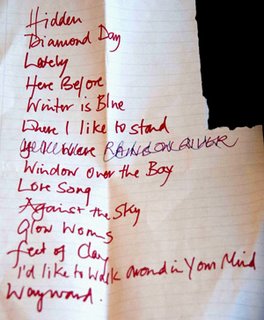 Hidden
Diamond Day
Lately
Here Before
Winter is Blue
Where I like to stand
Were RAINBOW RIVER
Window over the Bay
Love Song
Against the Sky
Glow Worms
Feet of Clay
I'd like to Walk around in Your Mind
Wayward.